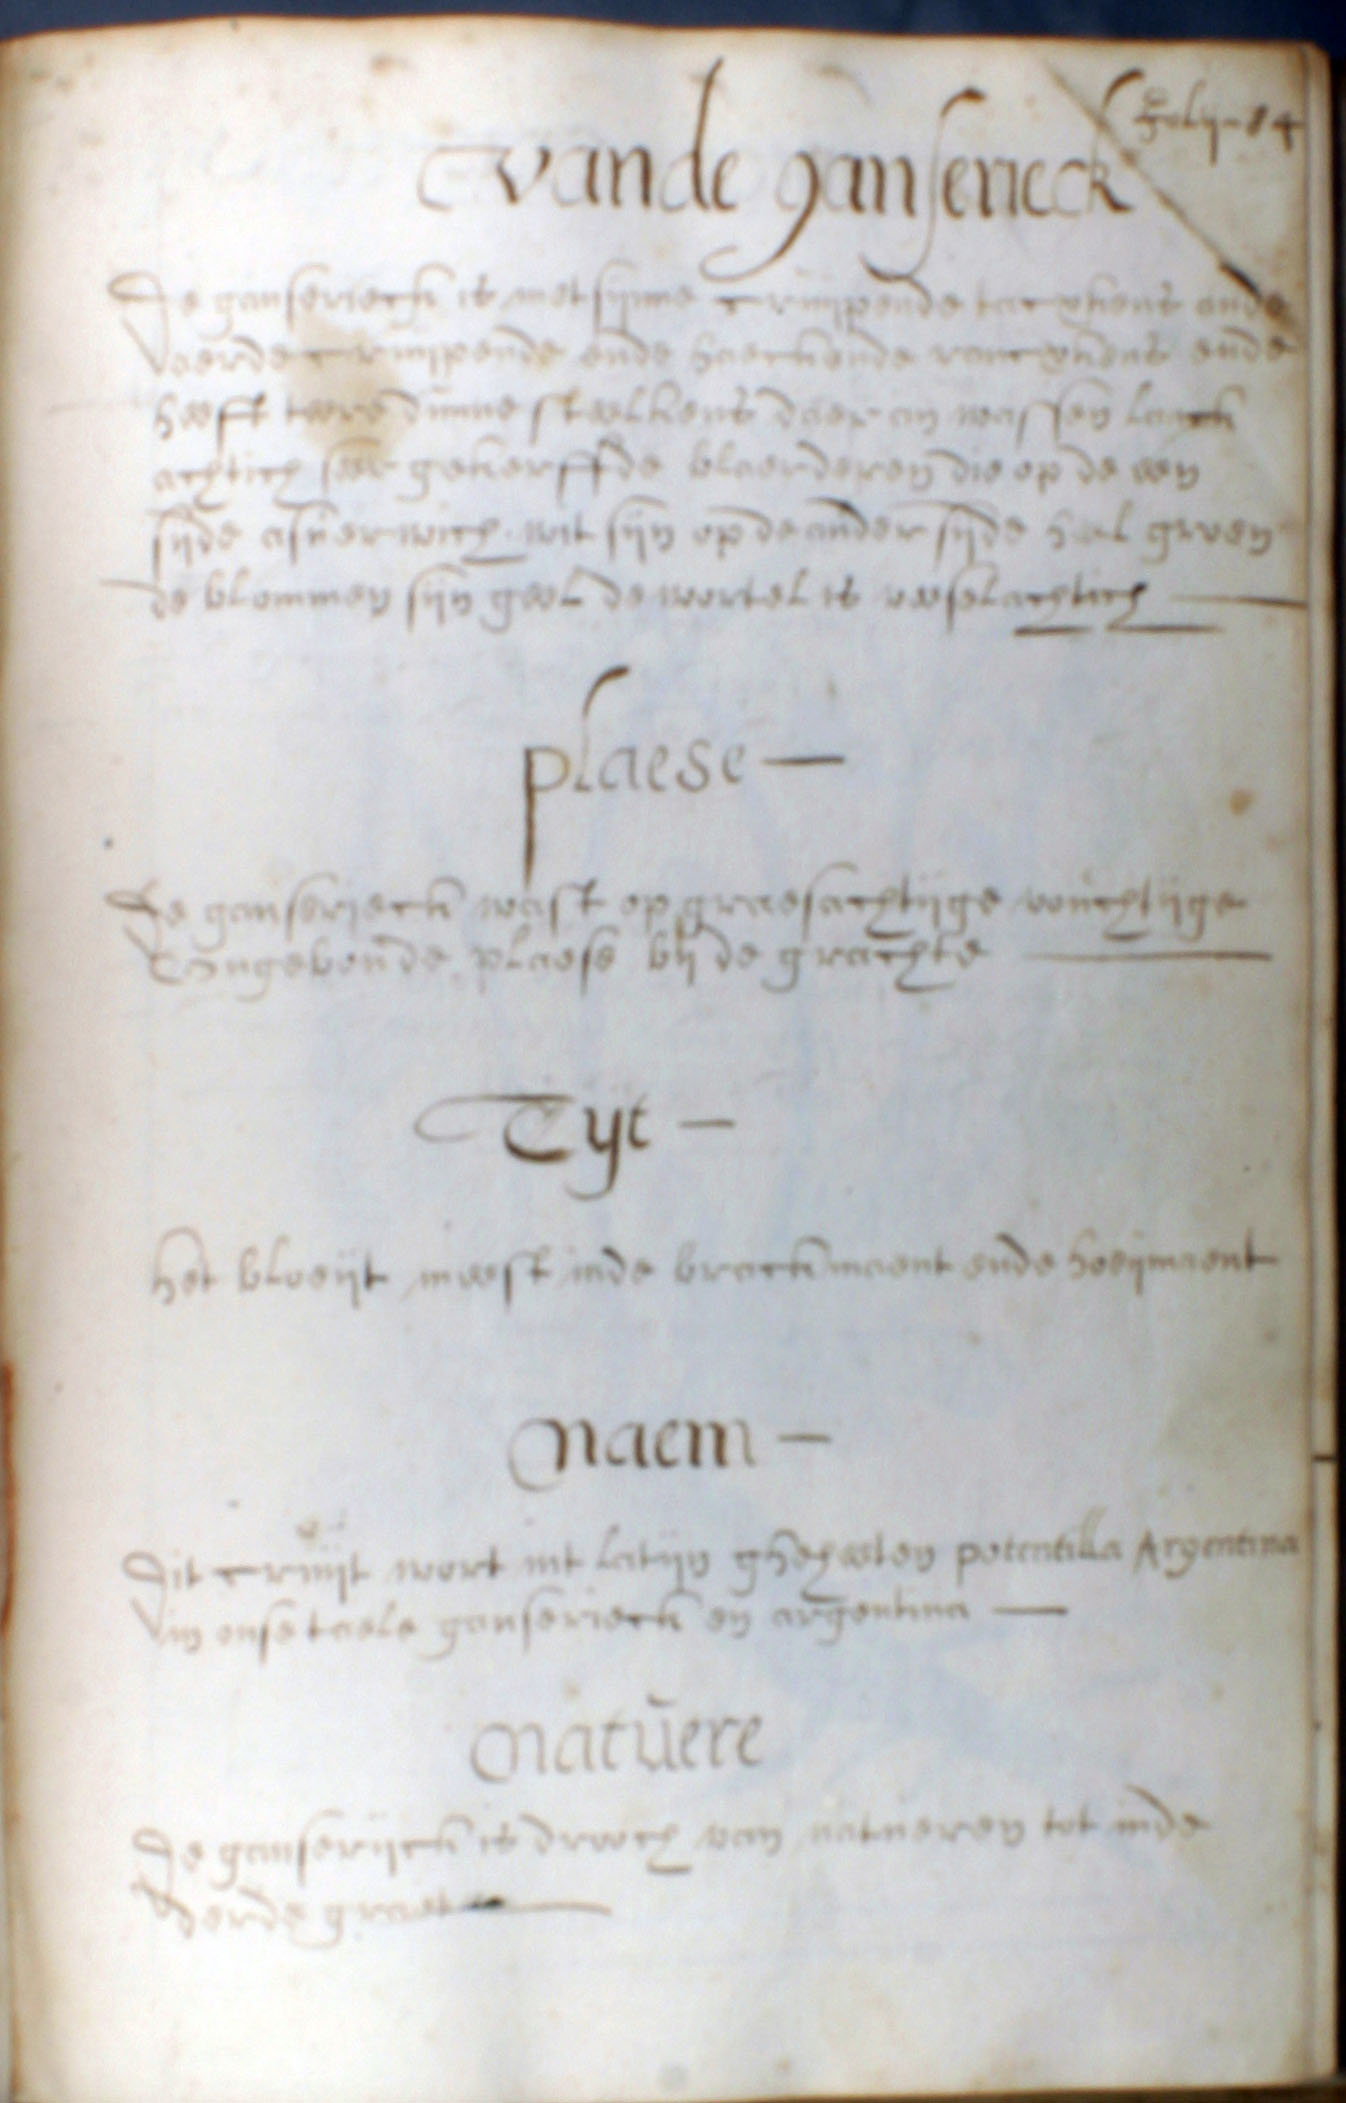 folij - 84
Vande ganserick
De ganserieck is met sijnne cruijpende tacxkens ende
veerde cruijpende ende haeckende rancxkens ende
heeft teere dunne steelkens daer an wassen lanck
achtich seer gekerffde blaerderen die op de een
sijde asverwich wit sijn op de ander sijde hel groen
de blommen sijn geel de wortel is veeslachtich
plaese —
De ganserieck wast op graesachtijge vouchtijge
Ongeboude plaese bij de grachte
Tijt —
het bloeijt meest inde brackmaent ende hoeijmaent
Naem —
Dit cruijt wort int latijn gheheeten potentilla Argentina
in onse taele ganserieck en argentina —
Natuere
De ganserijck is drooch van natueren tot inde
derde graet